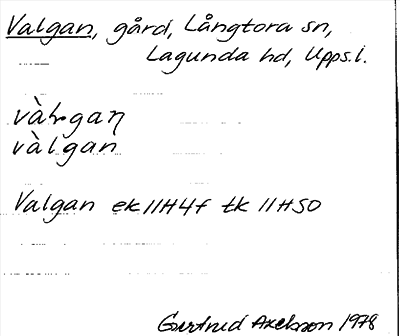 Valgan, gård, Långtora sn,
Lagunda hd, Upps.l.
vàɫgaŋ
vàlgan
Valgan ek 11H4f tk 11HSO
Gertrud Axelsson 1978